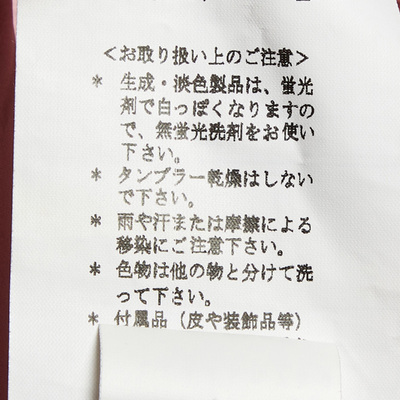 ＜お取り扱い上のご注意＞
＊ 生成・淡色製品は、蛍光
剤で白っぽくなりますの
で、無蛍光洗剤をお使い
下さい。
＊ タンブラー乾燥はしない
で下さい。
＊ 雨や汗または摩擦による
移染にご注意下さい。
＊ 色物は他の物と分けて洗
って下さい。
＊ 付属品（皮や装飾品等）